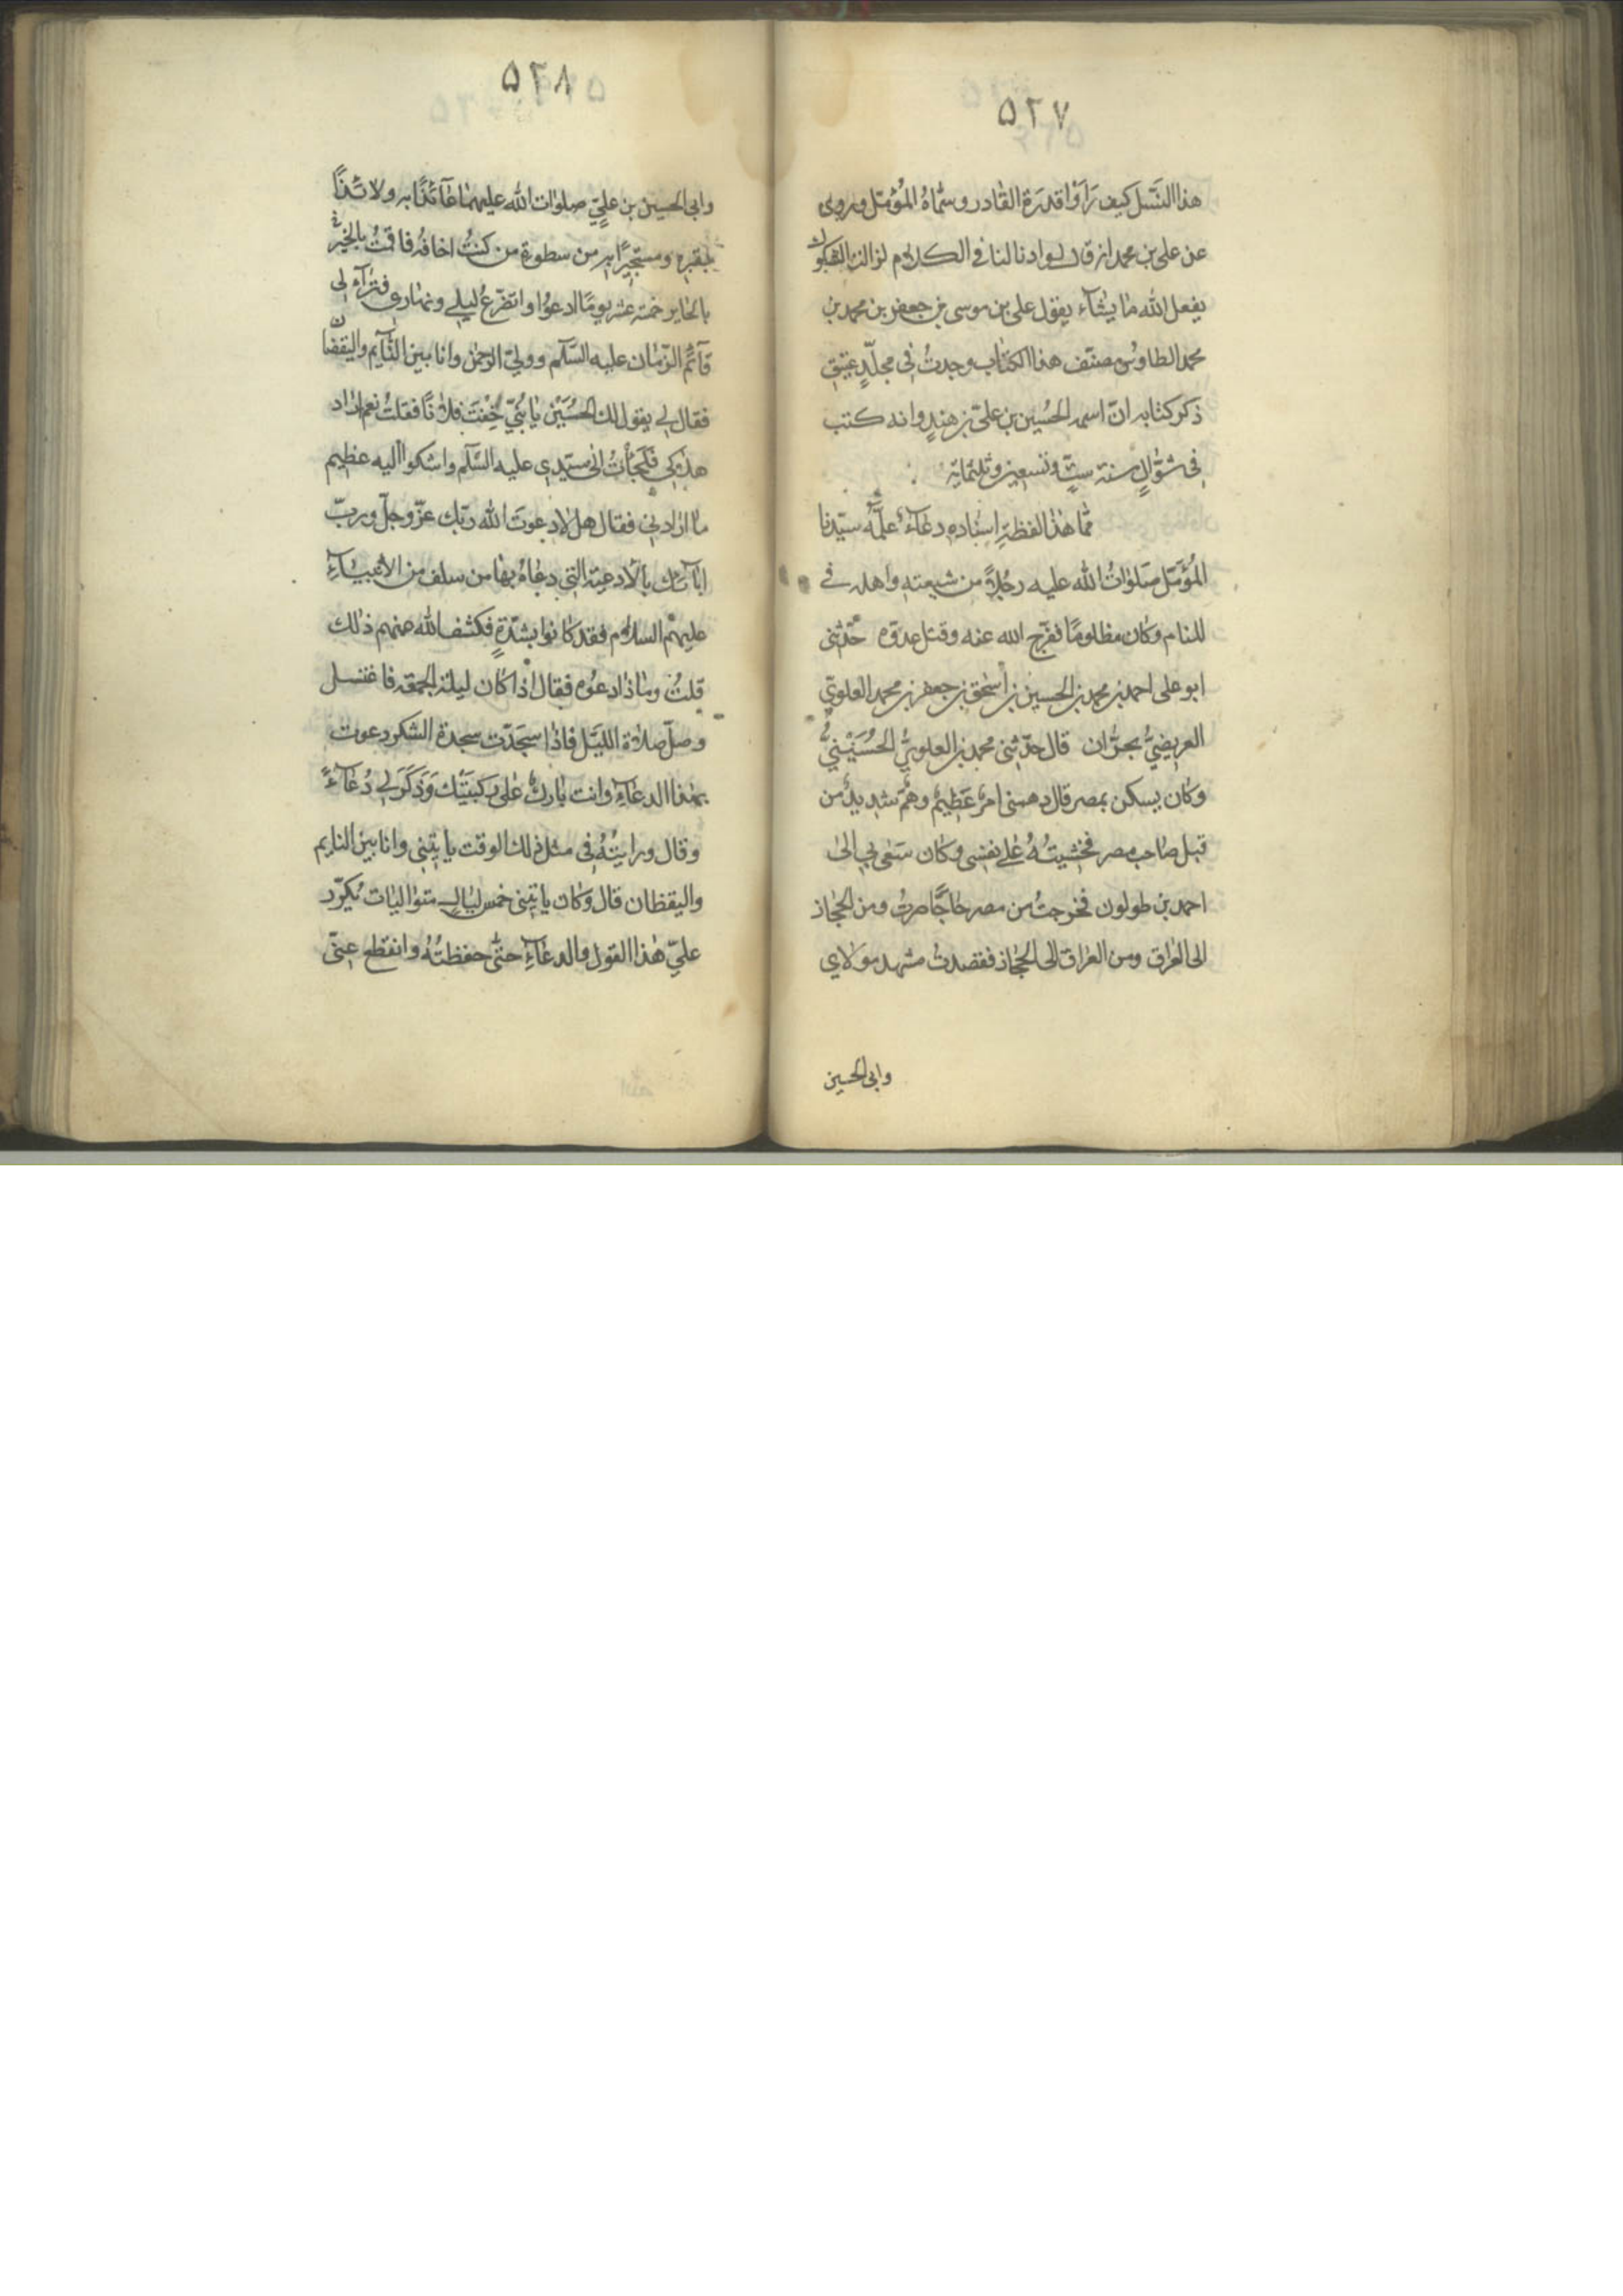 ٥٢٧
هذا النَّسل كيف رَاَوْا قدرَة القٰادر وسمّاهُ المُؤَمّل وروى
عن على بن محمد انه قال لو اذن لنا فى الكلام لزالت الشكوك
يفعل الله مٰا يشٰاء يقول على بن موسى بن جعفر بن محمد بن
محمد الطاوس مصنّف هذا الكتٰاب وجدتُ فى مجلّدٍ عتيقٍ
ذكر كتابه انّ اسمه الحُسين بن علىّ بن هندٍ وانه كتب
فى شوّالٍ سنة ستٍّ وتسعين وثلثمائة
فما هذا لفظه اِسنٰاده دعٰاءٌ علّمه سيّدنا
المُؤمّل صَلوٰاتُ الله عليه رجُلاً من شيعته واهله فى
المنام وكان مظلومًا ففرّج الله عنه وقتل عدوّه حدّثنى
ابو على احمد بن محمد بن الحسين بن اسحٰق بن جعفر بن محمد العلوىّ
العريضىُّ بحرّان قال حدّثنى محمد بن العلوىُّ الحُسَيْنىُّ
وكان يسكن بمصر قال دهمنى امرٌ عَظيمٌ وهَمٌّ شديدٌ من
قبل صاحب مصر فخشيتُهُ على نفسى وكان سَعى بى الى
احمد بن طولون فخرجتُ من مصر حٰاجًّا صرتُ ومن الحجٰاز
الى العراق ومن العراق الى الحجٰاز فقصدتُ مشهد مولاى
وابى الحسين
٥٢٨
وابى الحسين بن علىٍّ صلوٰات الله عليهمٰا عٰآئذًا به ولائذًا
بقبره ومستجيرًا به من سطوة من كنتُ اخافه فاقمتُ بالخير
بالحٰاير خمسة عشر يومًا ادعُوا واتضرّعُ ليلى ونهٰارى فترٰاء لى
قآئم الزّمٰان عليه السّلم وولىّ الرحمٰن وانا بين النّآيم واليقضان
فقال لى يقول لك الحُسَيْن يٰا بُنىّ خِفْتَ فلانًا فقلتُ نعم اراد
هلاكى فلجأتُ الى سيّدى عليه السّلم واشكوا اليه عظيم
ما ارٰاد بى فقال هل لا دعوتَ الله ربّك عزّ وجلّ وربّ
اٰبآئك بالادعية التى دعٰاهُ بهٰا من سلف من الانبيآءِ
عليهم السلام فقد كانوا بشدّةٍ فكشف الله عنهم ذٰلك
قلتُ ومٰاذا ادعُوه فقال اذا كان ليلة الجمعة فاغتسل
وصلّ صلاة الليَل فاذا سجَدّت سجدة الشكر دعوت
بهٰذا الدعٰآءِ وانت بارك على ركبتَيْك وَذكَرَ لى دُعٰآءً
وقال ورايتُهُ فى مثل ذلك الوقت ياتينى وانا بين النايم
واليقظان قال وكان ياتينى خمس ليٰالٍ متوٰاليٰات يُكرّر
علىّ هٰذا القول والدعٰآءِ حتّى حفظتُهُ وانقطع عنّى